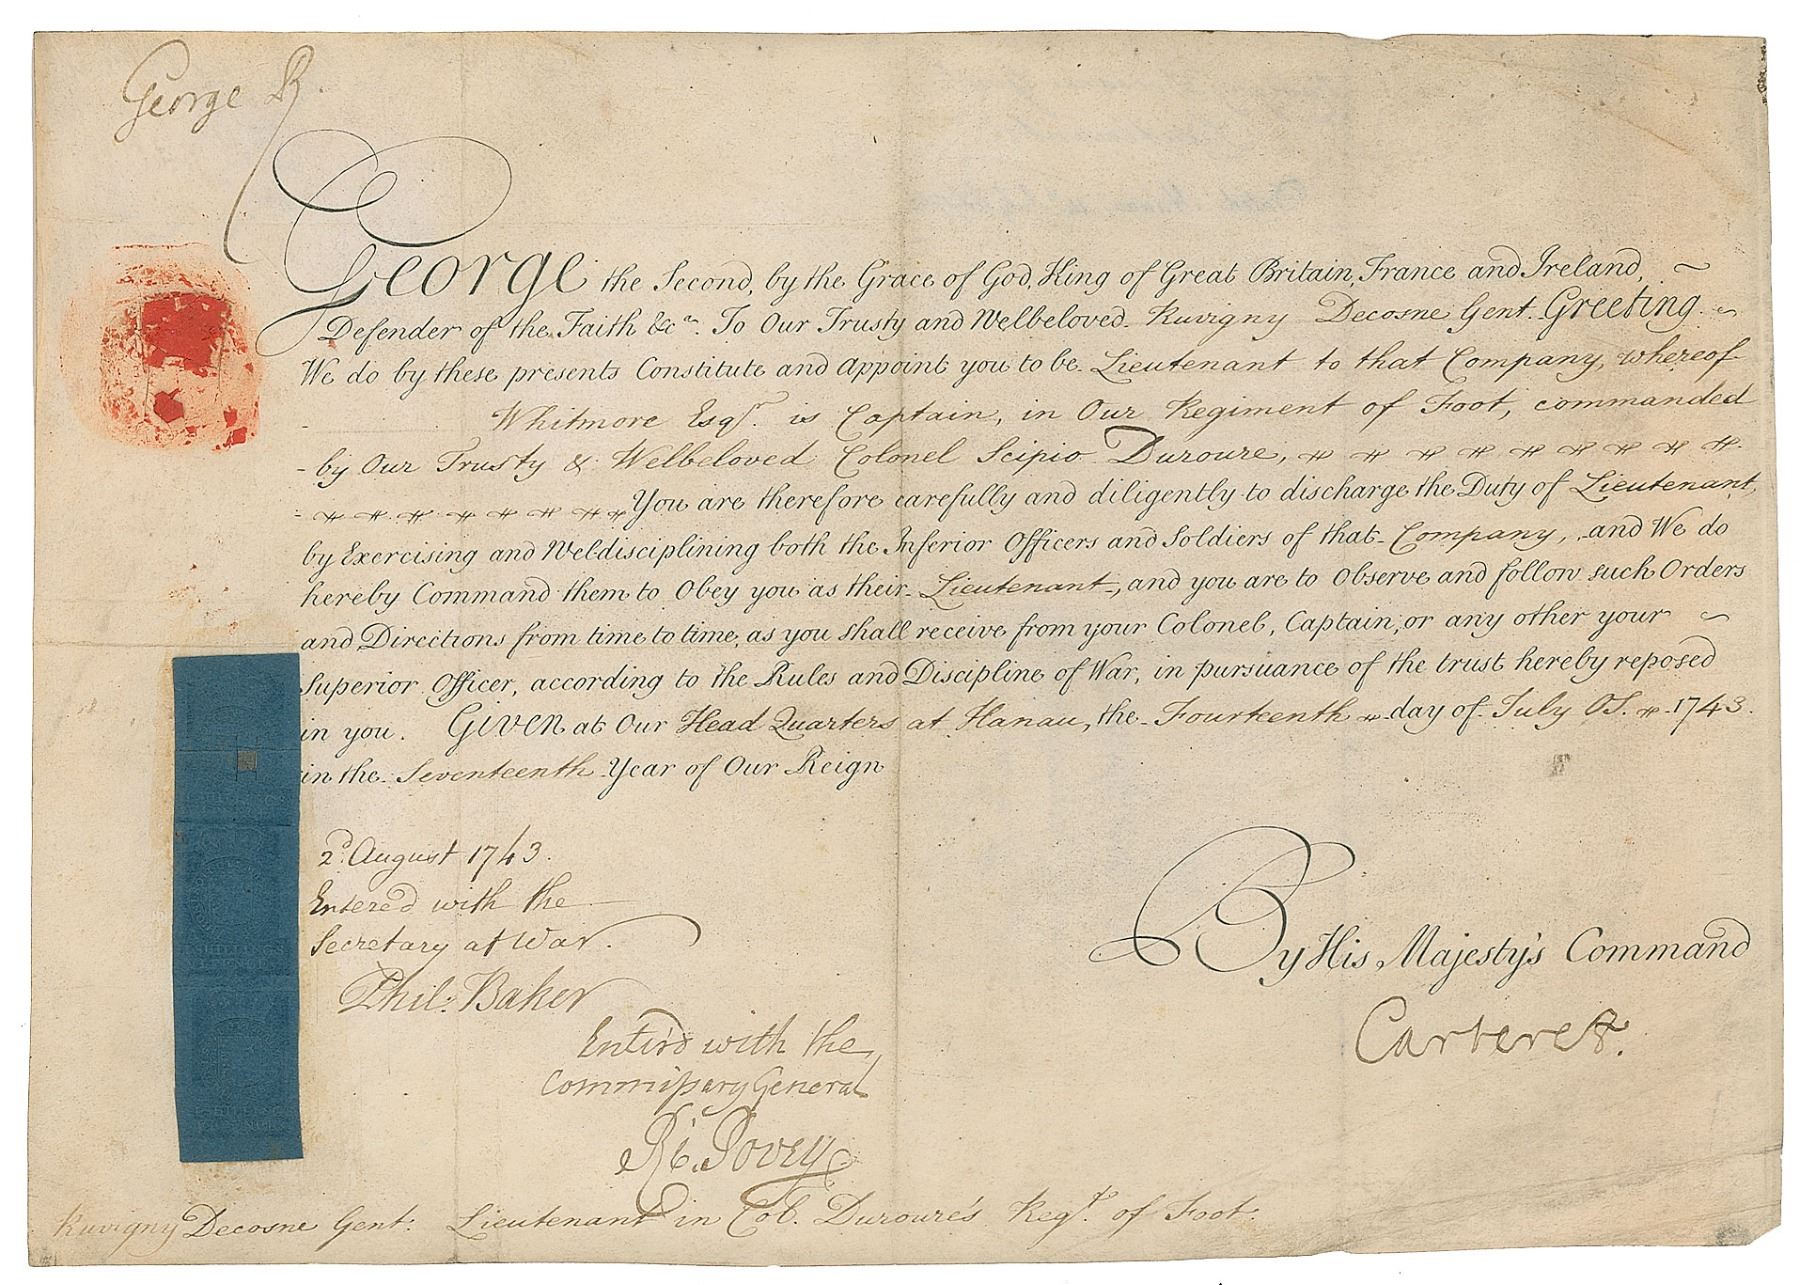 George R.
George the Second, by the Grace of God, King of Great Britain, France and Ireland,
Defender of the Faith &c.a To Our Trusty and Welbeloved Ruvigny Decosne Gent. Greeting.
We do by these presents Constitute and Appoint you to be Lieutenant to that Company, whereof
Whitmore Esqr. is Captain, in Our Regiment of Foot, commanded
by Our Trusty & Welbeloved Colonel Scipio Duroure,
You are therefore carefully and diligently to discharge the Duty of Lieutenant,
by Exercising and Wel-disciplining both the Inferior Officers and Soldiers of that Company, and We do
hereby Command them to Obey you as their Lieutenant, and you are to Observe and follow such Orders
and Directions from time to time, as you shall receive from your Colonel, Captain, or any other your
Superior Officer, according to the Rules and Discipline of War, in pursuance of the trust hereby reposed
in you. GIVEN at Our Head Quarters at Hanau, the Fourteenth day of July OS. 1743.
in the Seventeenth Year of Our Reign
2d. August 1743.
Entered with the
Secretary at War.
Phil: Baker
By His Majesty's Command
Carteret.
Enter'd with the
Commissary General
Rd. Povey
Ruvigny Decosne Gent: Lieutenant in Col. Duroure's Regt. of Foot.